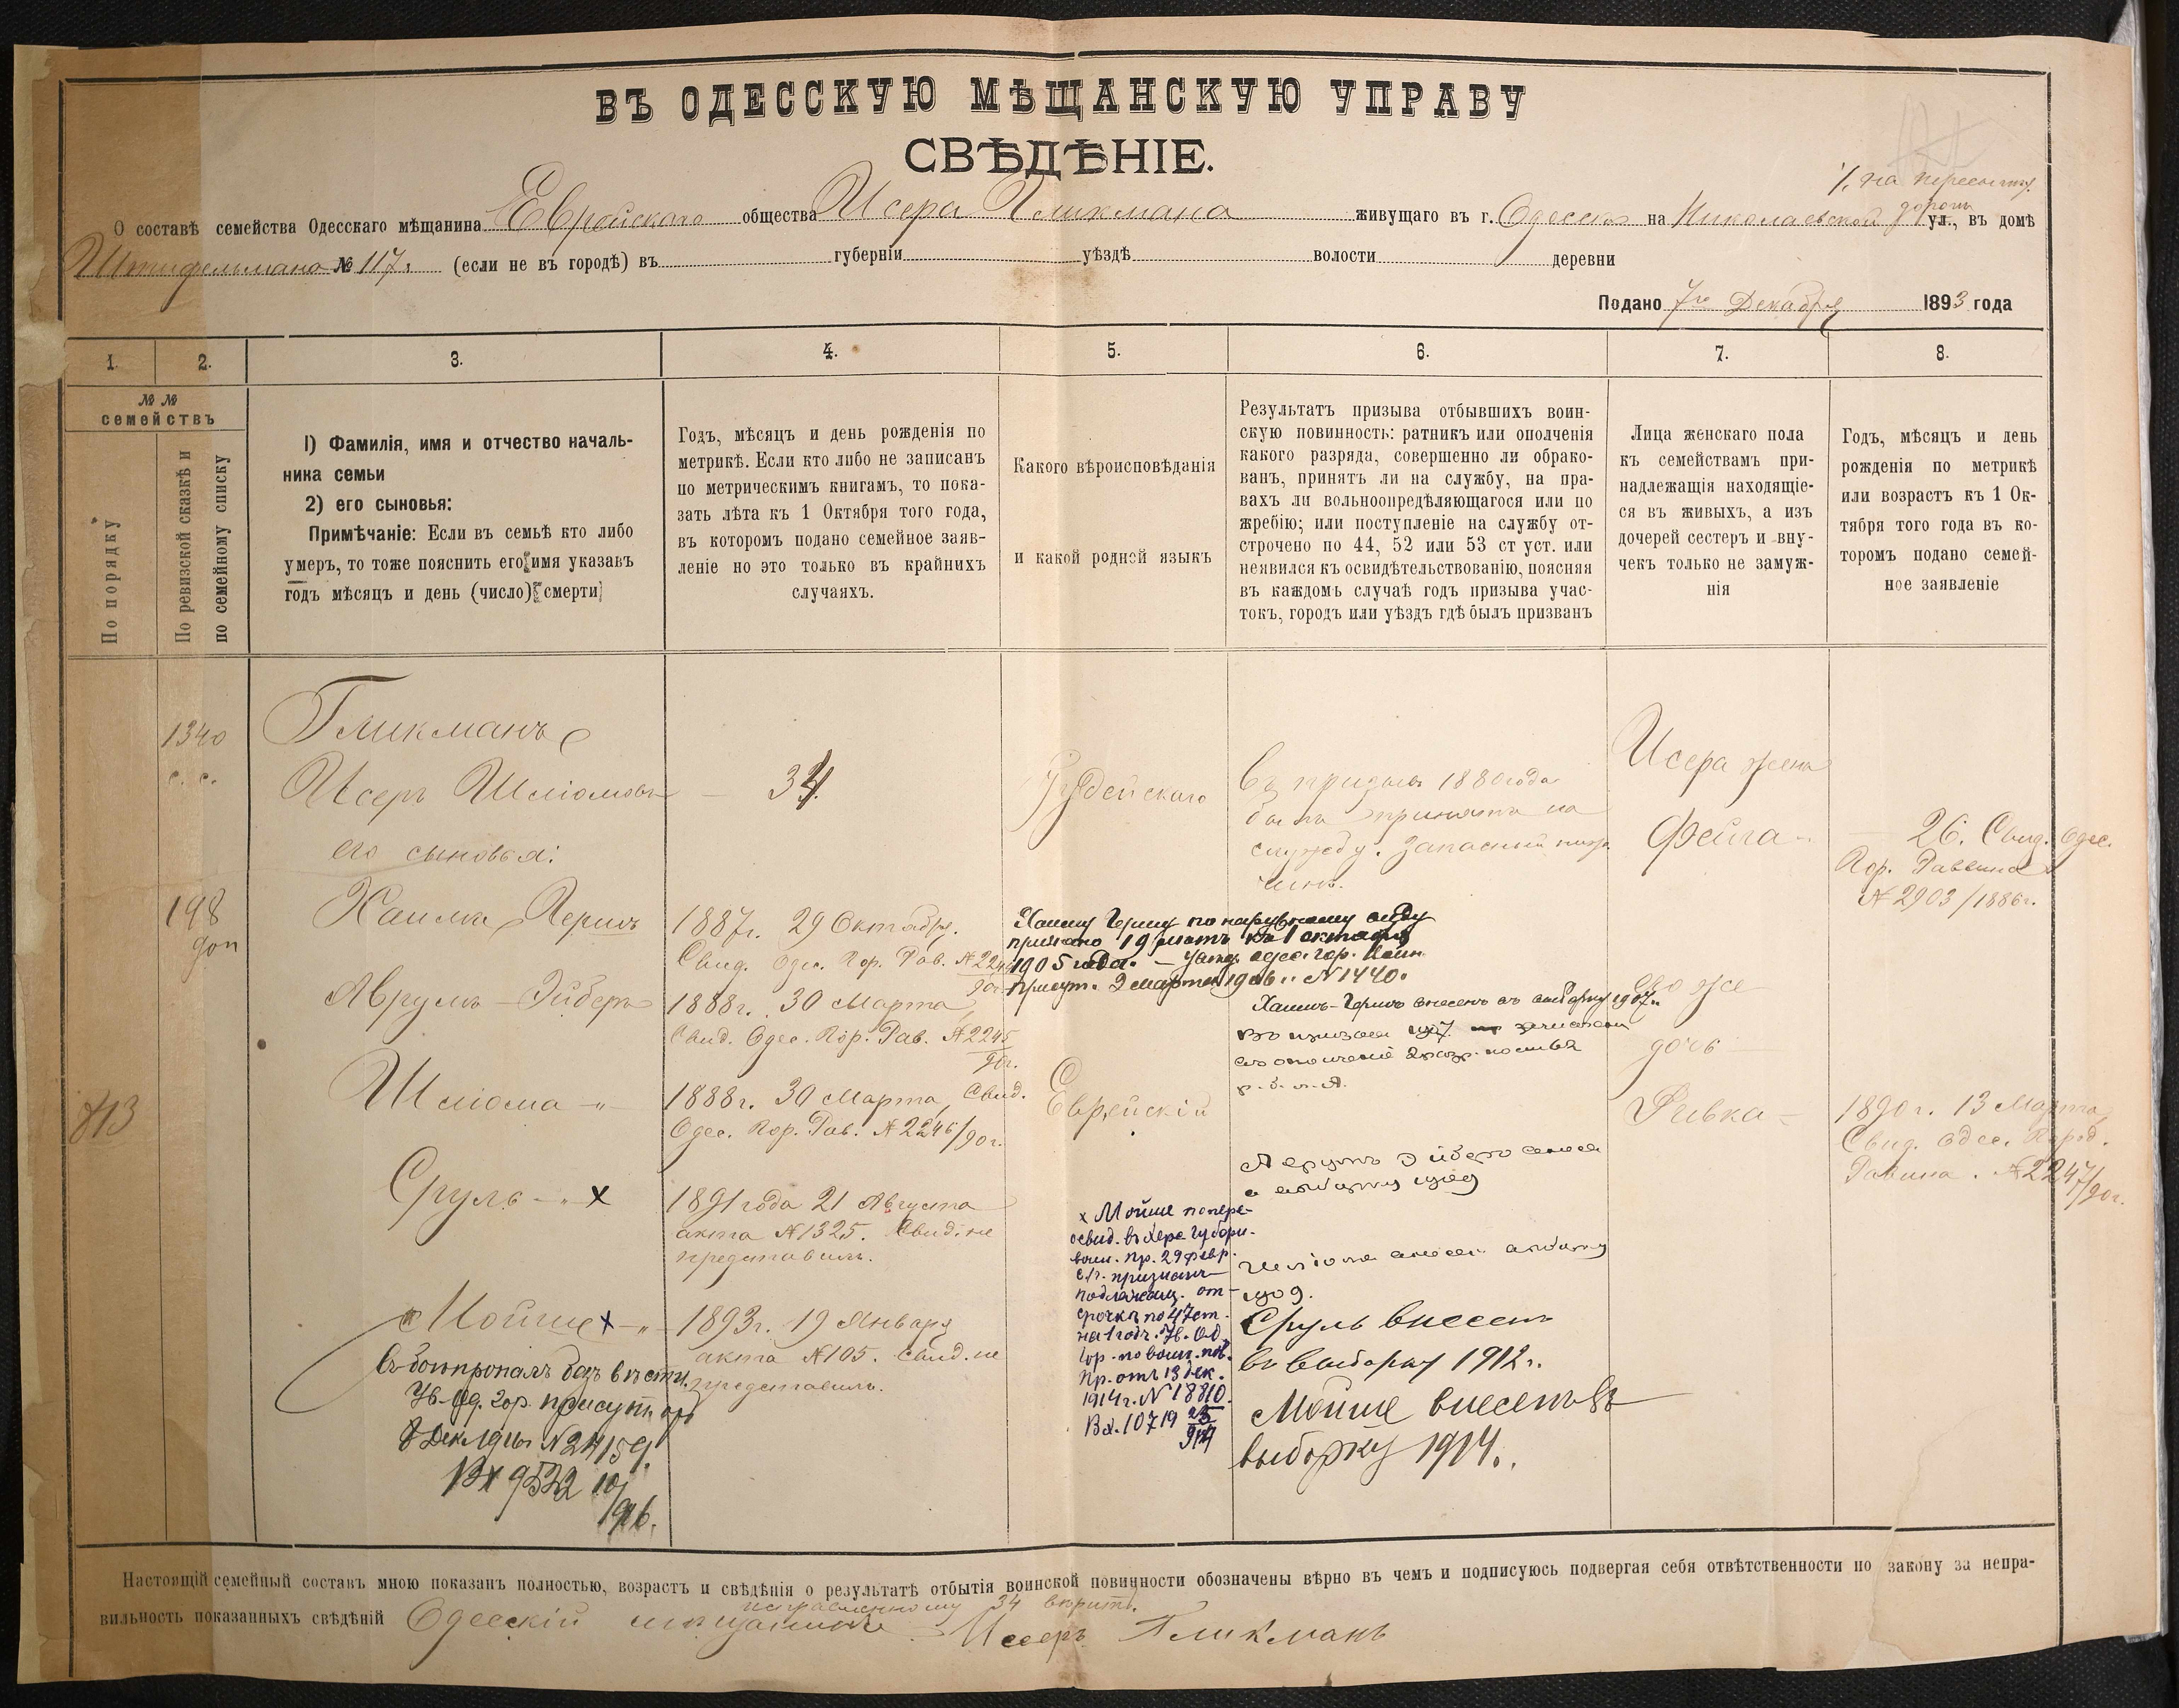 ВЪ ОДЕССКУЮ МѢЩАНСКУЮ УПРАВУ
СВѢДѢНІЕ.
О составѣ семейства Одесскаго мѣщанина Еврейскаго общества Исера Гликмана живущаго въ г. Одессѣ на Николаевской дорогѣ ул., въ домѣ
№ 117. (если не въ городѣ) въ губерніи уѣздѣ волости деревни
Подано 7го Декабря 1893 года
1. 2. 3. 4. 5. 6. 7. 8.
№ №
семействъ
По порядку
По ревизской сказкѣ и
по семейному списку
1) Фамилія, имя и отчество началь-
ника семьи
2) его сыновья:
Примѣчаніе: Если въ семьѣ кто либо
умеръ, то тоже пояснить его имя указавъ
годъ мѣсяцъ и день (число) смерти
Годъ, мѣсяцъ и день рожденія по
метрикѣ. Если кто либо не записанъ
по метрическимъ книгамъ, то пока-
зать лѣта къ 1 Октября того года,
въ которомъ подано семейное заяв-
леніе но это только въ крайнихъ
случаяхъ.
Какого вѣроисповѣданія
и какой родной языкъ
Результатъ призыва отбывшихъ воин-
скую повинность: ратникъ или ополченія
какого разряда, совершенно ли обрако-
ванъ, принятъ ли на службу, на пра-
вахъ ли вольноопредѣляющагося или по
жребію; или поступленіе на службу от-
строчено по 44, 52 или 53 ст уст. или
неявился къ освидѣтельствованію, поясняя
въ каждомъ случаѣ годъ призыва учас-
токъ, городъ или уѣздъ гдѣ былъ призванъ
Лица женскаго пола
къ семействамъ при-
надлежащія находящіе-
ся въ живыхъ, а изъ
дочерей сестеръ и вну-
чекъ только не замуж-
нія
Годъ, мѣсяцъ и день
рожденія по метрикѣ
или возрастъ къ 1 Ок-
тября того года въ ко-
торомъ подано семей-
ное заявленіе
813
1340
с. с.
198
доп
Гликманъ
Исеръ Шліомовъ
его сыновья:
Хаимъ Гершъ
Аврумъ-Эйберъ
Шліома - "
Сруль - " х
Мойше х - "
безъ вѣсти
Ув. Од. гор. присут. отъ
8 Дек. 1916 г. N 24159.
Вх 9532 10/1916.
34.
1887г. 29 Октября.
Свид. Одес. Гор. Рав.
1888г. 30 Марта
Свид. Одес. Гор. Рав. № 2245
90г.
1888г. 30 Марта, Свид.
Одес. Гор. Рав. № 2246/90г.
1891 года 21 Августа
акта № 1325. Свид. не
представилъ.
1893г. 19 Января
акта № 105. Свид. не
представилъ.
Іудейскаго
Еврейскій
Хаимъ Гершъ по наружному виду
признано 19 лѣтъ на 1 октября
1905 года. — увед. Одес. гор. Воин.
присут. 2 марта 1906 г. N 1440.
х Мойше по пере-
освид. въ Херс. Губерн.
воин. пр. 29 февр.
с/г. признанъ
подлежащ. от-
срочкѣ по 47 ст.
на 1 годъ. Ув. Од.
гор. по воин. пов.
пр. отъ 13 дек.
1914 г. N 18810.
Вх. 10719
Въ призывъ 1880 года
былъ принятъ на
службу. Запасный
чинъ.
Хаимъ-Гершъ внесенъ въ выборку 1907 г.
въ призывъ 1907 зачисленъ
въ ополченіе 2 разр.
Аврумъ Эйберъ внесенъ
въ выборку 1909
Шліома внесенъ выборку
1909.
Сруль внесенъ
въ выборку 1912 г.
Мойше внесенъ въ
выборку 1914.
Исера жена
Фейга -
его же
дочь
Ривка -
26. Свид. Одес.
Гор. Раввина
№ 2903/1886г.
1890 г. 13 Марта,
Свид. Одес. Город.
Равина. № 2247/90г.
Настоящій семейный составъ мною показанъ полностью, возрастъ и свѣдѣнія о результатѣ отбытія воинской повинности обозначены вѣрно въ чемъ и подписуюсь подвергая себя отвѣтственности по закону за непра-
вильность показанныхъ свѣдѣній Одесскій мѣщанинъ Исеръ Гликманъ
исправленному 34 вѣрить.